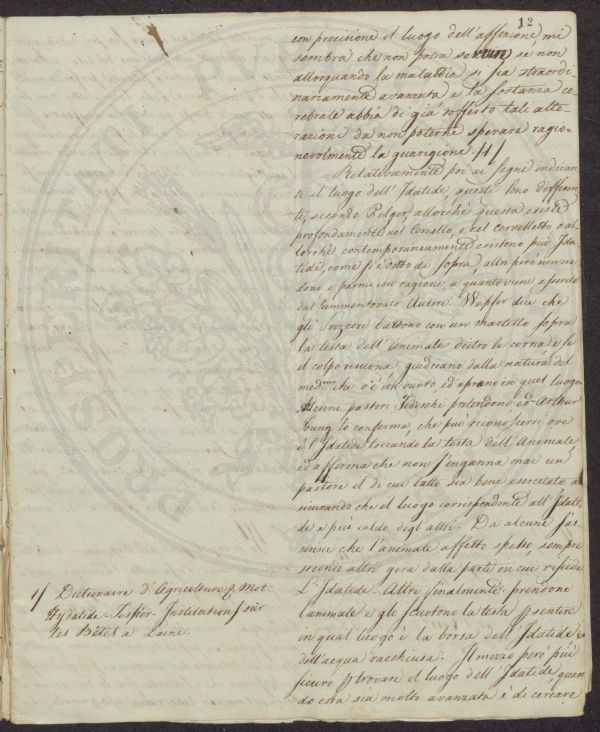 12
con precisione il luogo dell'affezione mi
sembra che non possa se non
allorquando la malattia si sia straordi-
nariamente avanzata e la sostanza ce-
rebrale abbia di già sofferto tali alte-
razioni da non poterne sperare ragio-
nevolmente la guarigione. /1/
Relativamente poi ai segni indican-
ti il luogo dell'Idatide questi sono differen-
ti, secondo Pelger, allorchè questa esiste
profondamente nel Cervello, e nel cervelletto o al-
lorchè contemporaneamente esistono più Ida-
tidi, come si è detto di sopra, altri però non ve-
dono e parmi con ragione, a quanto viene asserito
dal summentovato Autore. Wepfer dice che
gli Svizzeri battono con un martello sopra
la testa dell'animale dietro le corna e se
il colpo risuona giudicano dalla natura del
med.mo che v'è un vuoto, ed aprono in quel luogo.
Alcuni pastori Tedeschi pretendono ed Arthur
Young lo conferma, che può riconoscersi ove
è l'Idatide toccando la testa dell'Animale
ed afferma che non s'inganna mai un
pastore il di cui tatto sia bene esercitato as-
sicurando che il luogo corrispondente all'Idati-
de è più caldo degli altri. Da alcuni s'as-
serisce che l'animale affetto spesso, sempre
secondo altri gira dalla parte in cui risiede
l'Idatide. Altri finalmente prendono
l'animale e gli scuotono la testa p sentire
in qual luogo è la borsa dell'Idatide
dell'acqua racchiusa. Il mezzo però più
sicuro p trovare il luogo dell'Idatide quan-
do essa sia molto avanzata è di cercare
1/ Dictionaire d'Agriculture p Mot
Hydatide - Tessier Institution sur
les Bêtes a Laine.